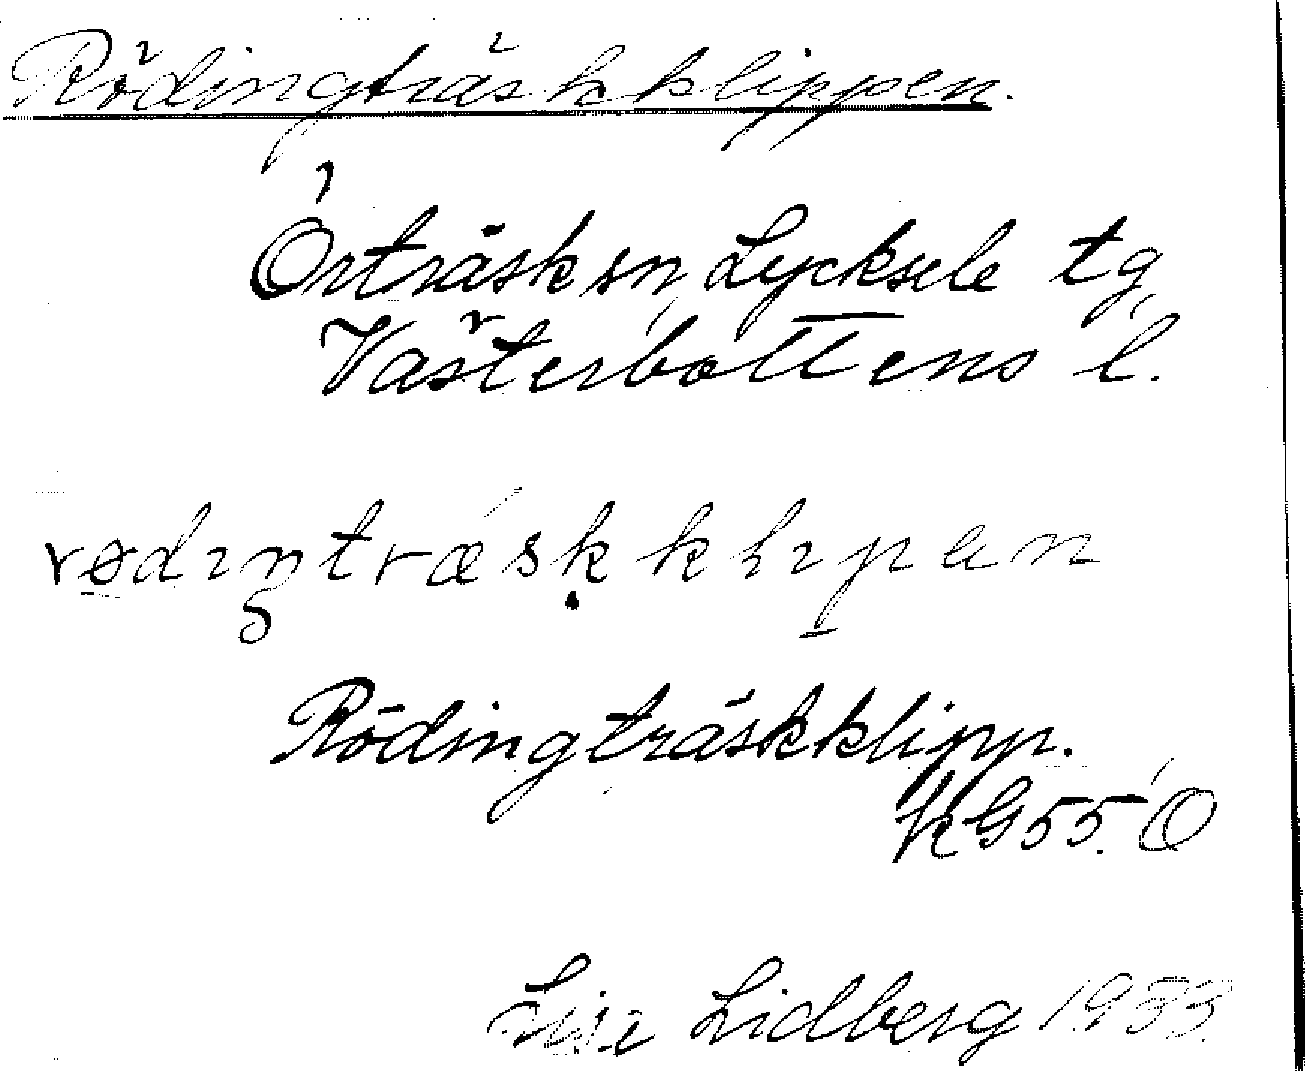 Rödingträskklippen.
Örträsk sn, Lycksele tg
Västerbottens l.
rødıŋtræskklıpan
Rödingträskklipp.
KG 55. Ö
Lisa Lidberg 1933.